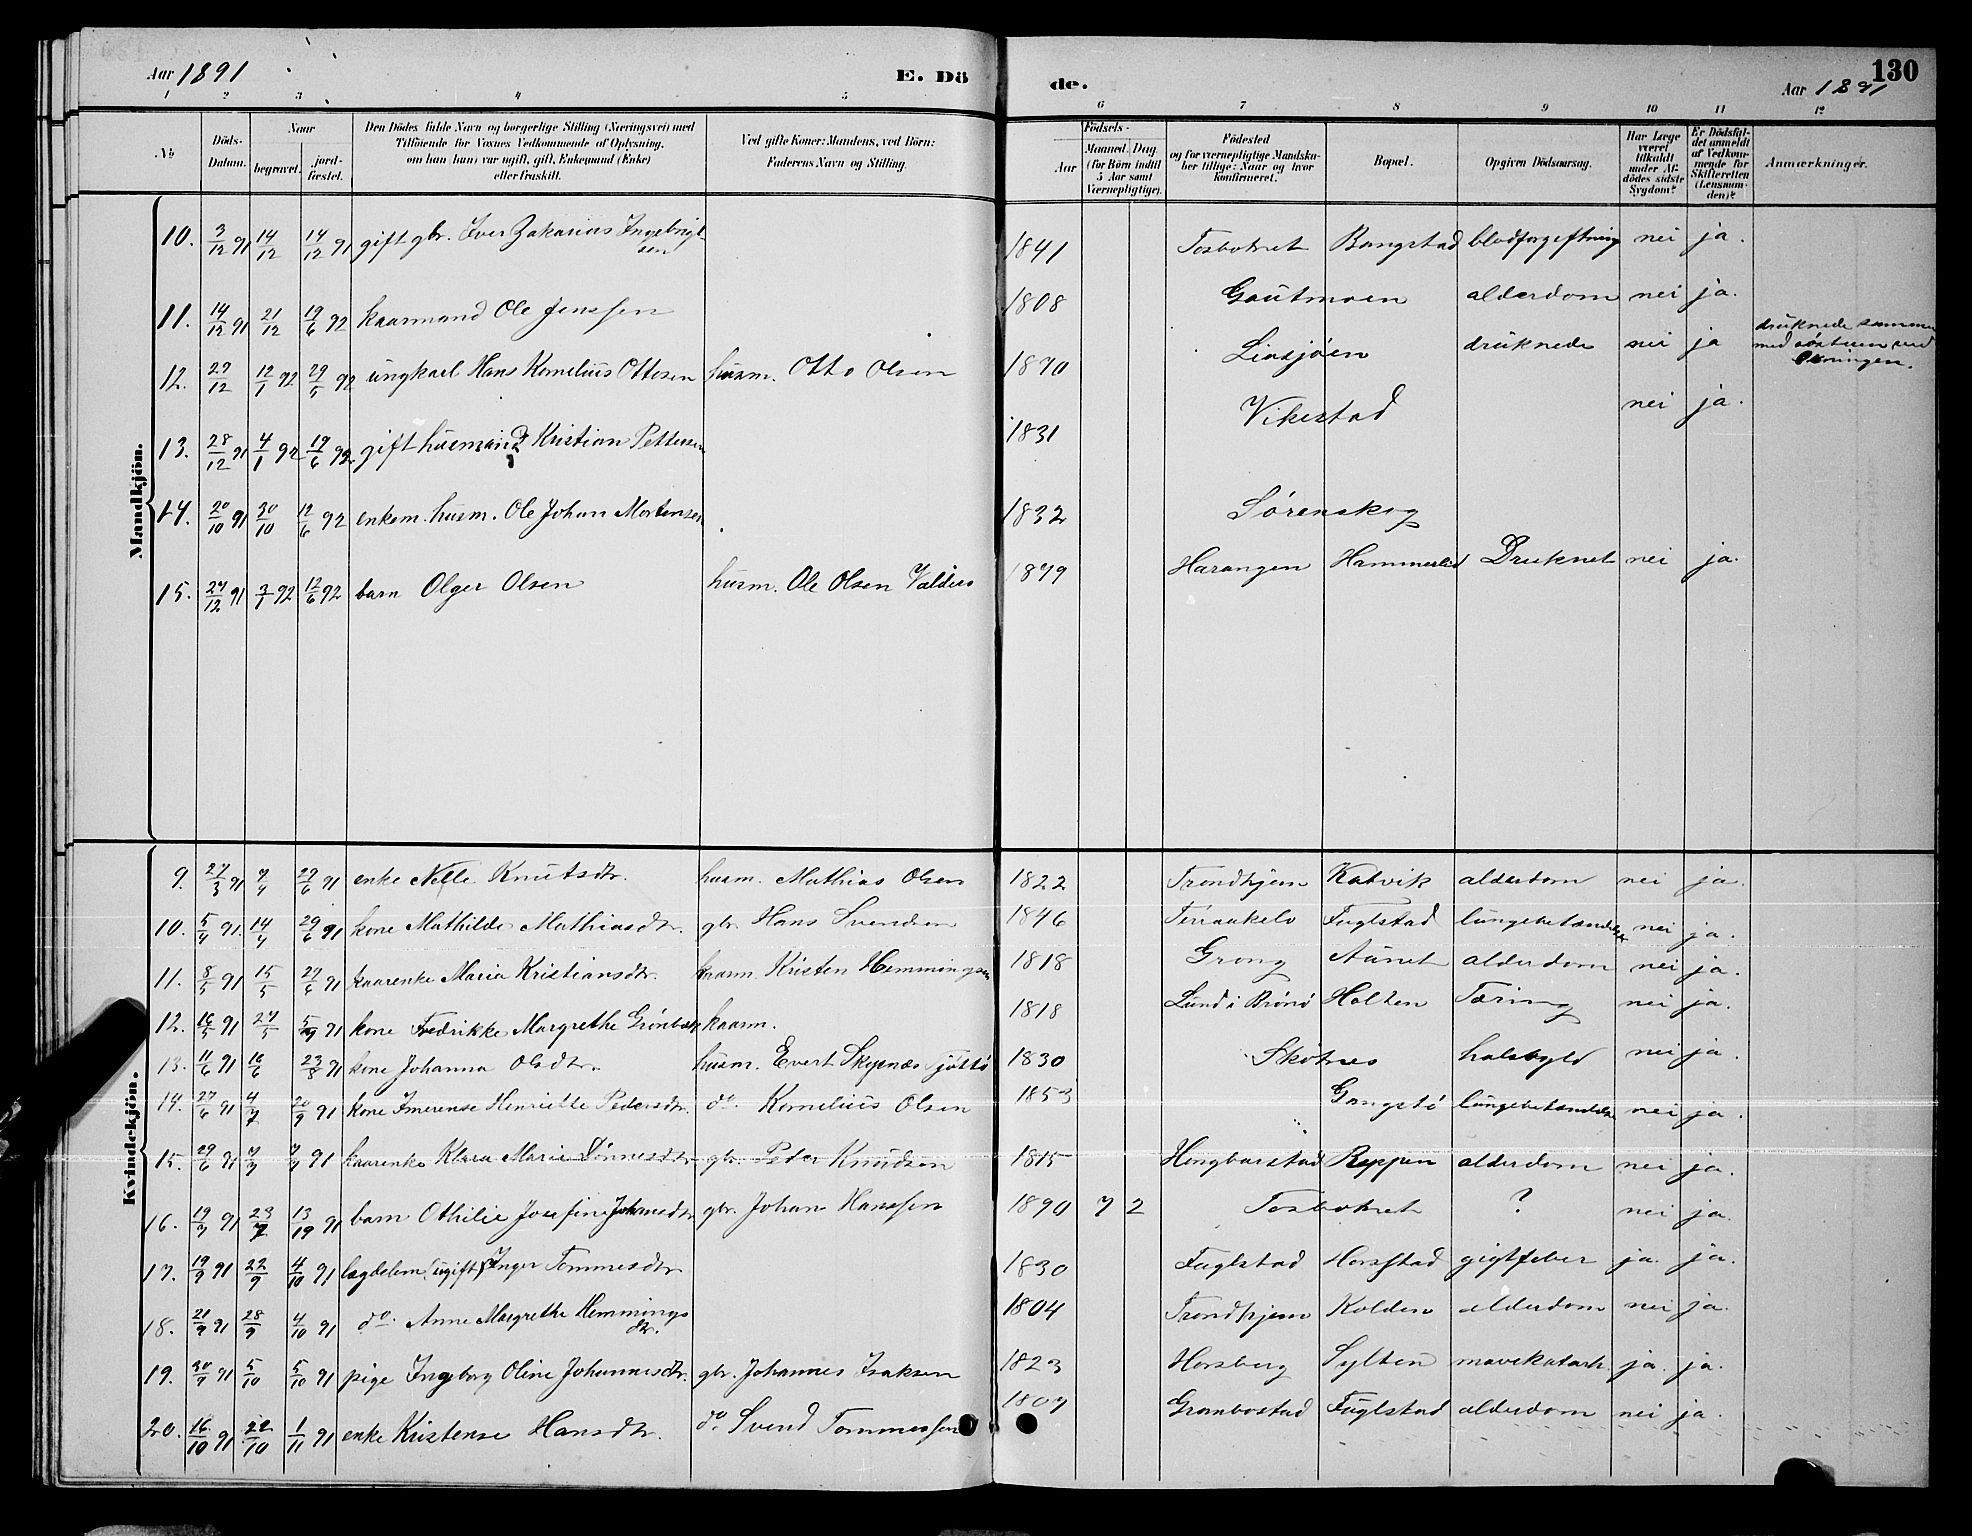 Aar 1891
E. Dö
de.
130
Aar 1891
1 2 3 4 5 6 7 8 9 10 11 12
No
Döds-Datum.
Naar
begravet.
jord-fæstet.
Den Dödes fulde Navn og borgerlige Stilling (Næringsvei) med
Tilföiende for Voxnes Vedkommende af Oplysning,
om han (hun) var ugift, gift, Enkemand (Enke)
eller fraskilt.
Ved gifte Koner: Mandens, ved Börn:
Faderens Navn og Stilling.
Födsels-
Aar
Maaned. Dag.
(for Börn indtil
5 Aar samt
Værnepligtige).
Födested
og for værnepligtige Mandskaber tillige: Naar og hvor
konfirmeret.
Bopæl.
Opgiven Dödsaarsag.
Har Læge
været
tilkaldt
under Afdödes sidste
Sygdom?
Er Dödsfaldet anmeldt
af Vedkommende for
Skifteretten
(Lensmanden)?
Anmærkninger.
Mandkjön.
10. 3/12 91 14/12 14/12 91 gift gbr. Iver Zakarias Ingebrigtsen 1841 Tosbotnet Bangstad blodforgiftning nei ja.
11. 14/12 91 21/12 19/6 92 kaarmand Ole Jenssen 1808 Gautmoen alderdom nei ja.
12. 29/12 12/1 92 29/5 92 ungkarl Hans Kornelius Ottosen husm. Otto Olsen 1870 druknede nei ja druknede sammen
13. 28/12 91 4/1 92 19/6 92 gift husmand Kristian Pettersen 1831 Vikestad nei ja.
14. 20/10 91 30/10 12/6 92 enkem. husm. Ole Johan Mortensen 1832 Sørenskog
15. 27/12 91 3/1 92 12/6 92 barn Olger Olsen husm. Ole Olsen 1879 Harangen Druknet nei ja.
Kvindekjön.
9. 27/3 91 29/6 91 enke Nelle Knutsdtr. husm. Mathias Olsen 1822 Trondhjem Kalvik alderdom nei ja.
10. 5/4 91. 14/4 29/6 91 kone Mathilde Mathiasdtr. gbr. Hans Svendsen 1846 Terraakelv Fuglstad lungebetændelse nei ja.
11. 8/5 91 15/5 29/6 91 kaarenke Maria Kristiansdtr. kaarm. Kristen Hemmingsen 1818 Grong Aunet alderdom nei ja.
12. 16/5 91 27/5 91 kone Fredrikke Margrethe Grønbæk kaarm. 1818 Lund i Brønø Holten Tæring nei ja.
13. 11/6 91 16/6 23/8 91 kone Johanna Olsdtr. husm. Evert 1830 Skotnes halsbyld nei ja.
14. 27/6 91 4/7 20/9 91 kone Imerense Henriette Pedersdtr. do. Kornelius Olsen 1853 lungebetændelse nei ja.
15. 29/6 91 91 kaarenke Klara Marie Tønnesdtr. gbr. Peder Knudsen 1815 Reppen alderdom nei ja.
16. 91 91 barn Othilie Josefine Johansdtr gbr. Johan Hanssen 1890 7 2 Tosbotnet ? nei ja.
17. 19/9 91 22/9 4/10 91 lægdelem (ugift) Inger Tommesdtr. 1830 Fuglstad Horsstad gigtfeber ja. ja.
18. 21/9 91 28/9 4/10 91 do. Anne Margrethe Hemmingsdtr. 1804 Trondhjem Kolden alderdom nei ja.
19. 30/9 91 5/10 5/10 91 pige Ingeborg Oline Johannesdtr. gbr. Johannes Isaksen 1823 Horsberg Sylten mavekatarh. ja. ja.
20. 16/10 91 22/10 1/11 91 enke Kristense Hansdtr. do Svend Tommessen 1807 Grambostad Fuglstad alderdom nei ja.